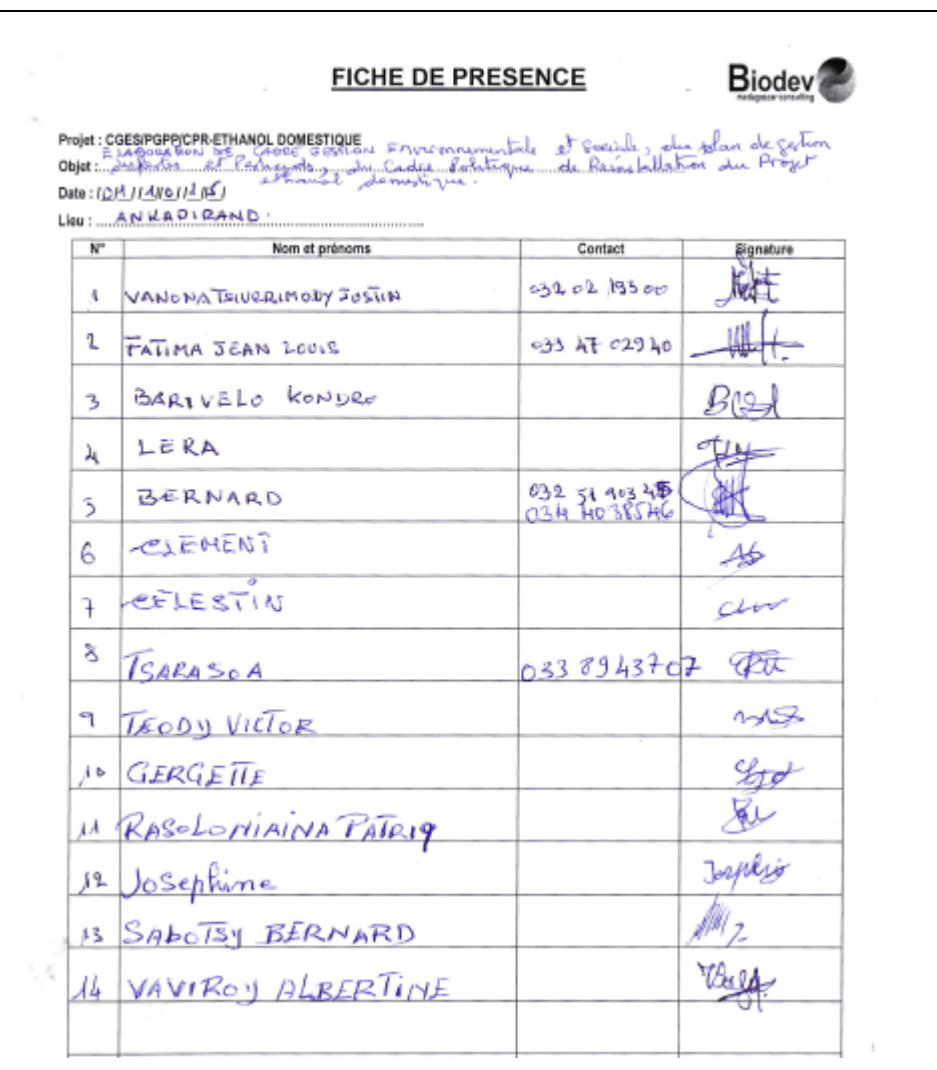 FICHE DE PRESENCE
Biodev
madagascar consulting
Projet : CGES/PGPP/CPR-ETHANOL DOMESTIQUE
ELABORATION DE CADRE GESTION Environnementale et Sociale, du plan de gestion
Objet : et Pesticides, du Cadre Politique de Réinstallation du Projet
ethanol domestique.
Date :
Lieu : ANKADIRANO.
N° Nom et prénoms Contact Signature
1 VANONA TSIVERIMODY JUSTIN 032 02 19500
2 FATIMA JEAN LOUIS 033 47 02940
3 BARIVELO KONDRO
4 LERA
5 BERNARD 032 51 903 45
034 40 385 46
6 CLEMENT
7 CELESTIN
8 TSARASOA 033 89 437 07
9 TEODY VICTOR
10 GERGETTE
11 RASOLONIAINA PATRIQ
12 Josephine Josephine
13 SABOTSY BERNARD
14 VAVIROY ALBERTINE